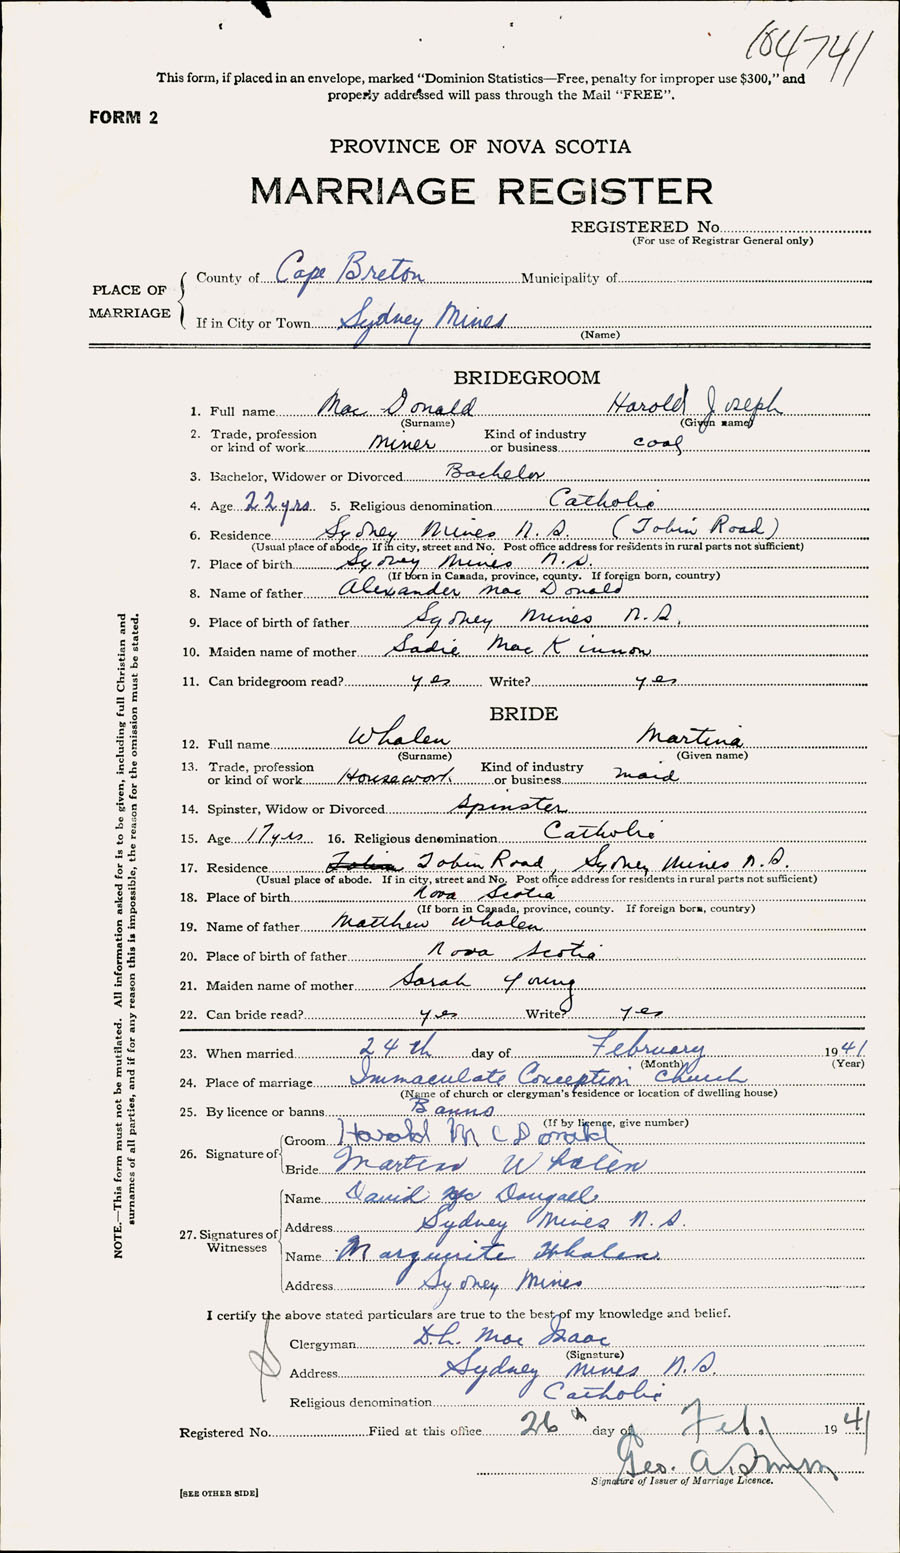 104741
This form, if placed in an envelope, marked "Dominion Statistics—Free, penalty for improper use $300," and
properly addressed will pass through the Mail "FREE".
FORM 2
PROVINCE OF NOVA SCOTIA
MARRIAGE REGISTER
REGISTERED No.
(For use of Registrar General only)
PLACE OF MARRIAGE
County of Cape Breton Municipality of
If in City or Town Sydney Mines
(Name)
BRIDEGROOM
1. Full name Mac Donald Harold Joseph
(Surname) (Given name)
2. Trade, profession or kind of work miner Kind of industry or business coal
3. Bachelor, Widower or Divorced Bachelor
4. Age 22 yrs 5. Religious denomination Catholic
6. Residence Sydney Mines N.S. (Tobin Road)
(Usual place of abode. If in city, street and No. Post office address for residents in rural parts not sufficient)
7. Place of birth Sydney Mines N.S.
(If born in Canada, province, county. If foreign born, country)
8. Name of father Alexander Mac Donald
9. Place of birth of father Sydney Mines N.S.
10. Maiden name of mother Sadie Mac Kinnon
11. Can bridegroom read? yes Write? yes
BRIDE
12. Full name Whalen Martina
(Surname) (Given name)
13. Trade, profession or kind of work Housework Kind of industry or business maid
14. Spinster, Widow or Divorced Spinster
15. Age 17 yrs 16. Religious denomination Catholic
17. Residence Tobin Tobin Road, Sydney Mines N.S.
(Usual place of abode. If in city, street and No. Post office address for residents in rural parts not sufficient)
18. Place of birth Nova Scotia
(If born in Canada, province, county. If foreign born, country)
19. Name of father Matthew Whalen
20. Place of birth of father Nova Scotia
21. Maiden name of mother Sarah Young
22. Can bride read? yes Write? yes
23. When married 24th day of February 1941
(Month) (Year)
24. Place of marriage Immaculate Conception Church
(Name of church or clergyman's residence or location of dwelling house)
25. By licence or banns Banns
(If by licence, give number)
26. Signature of
Groom Harold McDonald
Bride Martina Whalen
27. Signatures of Witnesses
Name David Mc Dougall
Address Sydney Mines N.S.
Name Marguerite Whalen
Address Sydney Mines
I certify the above stated particulars are true to the best of my knowledge and belief.
Clergyman D.h. Mac Isaac
(Signature)
Address Sydney Mines N.S.
Religious denomination Catholic
Registered No. Filed at this office 26th day of Feb. 1941
Geo. A.
Signature of Issuer of Marriage Licence.
[SEE OTHER SIDE]
NOTE.—This form must not be mutilated. All information asked for is to be given, including full Christian and
surnames of all parties, and if for any reason this is impossible, the reason for the omission must be stated.